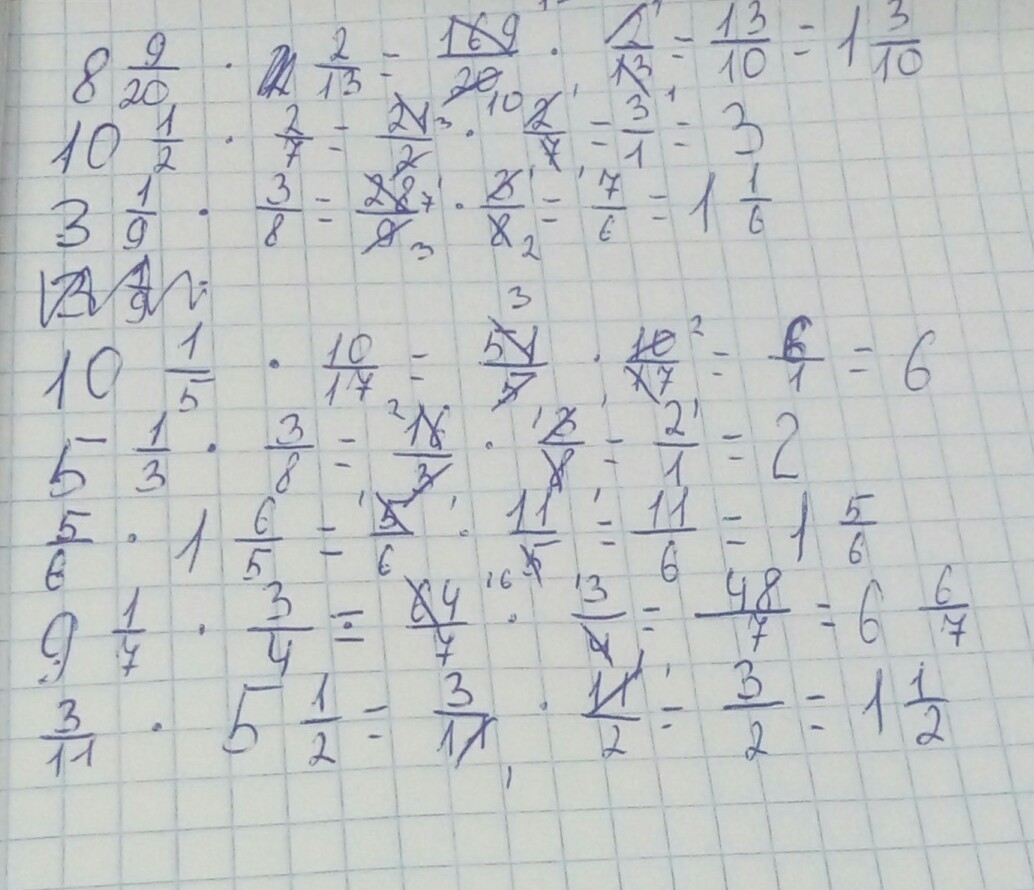 8 9/20 · 2/13 = 169/20 · 2/13 = 13/10 = 1 3/10
10 1/2 · 2/7 = 21/2 · 2/7 = 3/1 = 3
3 1/9 · 3/8 = 28/9 · 3/8 = 7/6 = 1 1/6
10 1/5 · 10/17 = 51/5 · 10/17 = 6/1 = 6
5 1/3 · 3/8 = 16/3 · 3/8 = 2/1 = 2
5/6 · 1 6/5 = 5/6 · 11/5 = 11/6 = 1 5/6
9 1/7 · 3/4 = 64/7 · 3/4 = 48/7 = 6 6/7
3/11 · 5 1/2 = 3/11 · 11/2 = 3/2 = 1 1/2